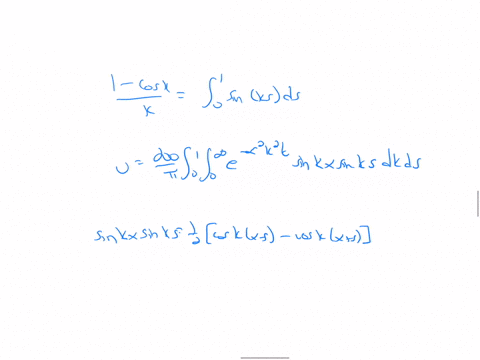 (1 - cos k)/k = ∫₀¹ sin(ks) ds
u = 200/π ∫₀¹ ∫₀^∞ e^(-α²k²t) sin kx sin ks dk ds
sin kx sin ks = 1/2 [cos k(x-s) - cos k(x+s)]